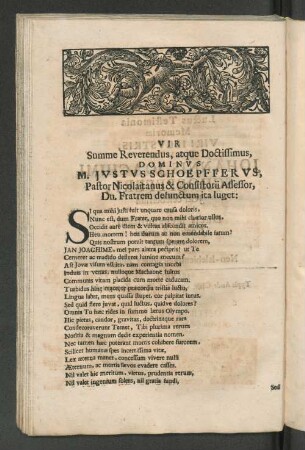 VIR
Summe Reverendus, atque Doctissimus,
DOMINUS
M. JVSTVS SCHOEPFFERVS,
Pastor Nicolaitanus & Consistorii Assessor,
Dn. Fratrem defunctum ita luget:
SI qua mihi justi fuit unquam causa doloris,
Nunc est, dum Frater, quo non mihi charior alter,
Occidit aure diem & vultus abscondit amicos.
Heu mortem! heu durum ac non mutabile fatum!
Quis nostrum poterit tantum lenire dolorem,
JAN JOACHIME, mei pars altera pectoris! ut Te
Cernerer ac mœsto defunctum funere
Ast Jova visum est, cum corrupta
Indus in venis, multoque Machaonе
Communis vitam placida cum morte
Turbidus hinc præcordia tristia luctus,
Lingua labat, mens quassa stupet, cor palpitat intus.
Sed quid fiem juvat, quid luctus, quidve dolores?
Omnia Tu hæc rides in summo lætus Olympo.
Hic pietas, candor, gravitas, doctrinæque
Consenuere Tamet, Tibi plurima rerum
Notitia & magnum dedit experientia nomen.
Nec tamen hæc poterant mortis cohibere furorem.
Scilicet humanæ spes incertissima vitæ,
Lex æterna manet, concessum vivere nulli
Æternum, ac mortis sævos evadere casses.
Nil valet hic meritum, virtus, prudentia rerum,
Nil valet ingenium solers, nil gratia
Sed